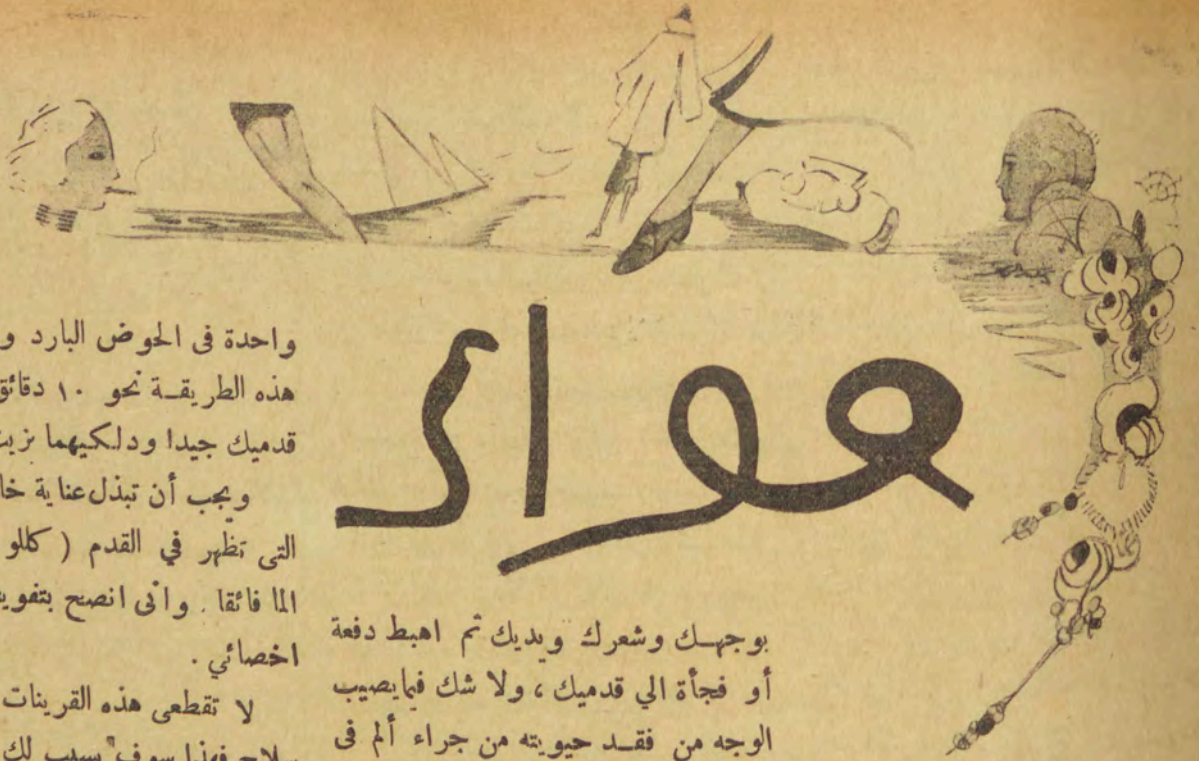 بوجهك وشعرك ويديك ثم اهبط دفعة
أو فجأة الي قدميك ، ولا شك فيما يصيب
الوجه من فقد حيويته من جراء ألم فى
واحدة فى الحوض البارد و
هذه الطريقة نحو ١٠ دقائق
قدميك جيدا ودلكيهما بزيت
ويجب أن تبذل عناية خا
التى تظهر في القدم ( كللو
الما فائقا . وانى انصح بتفويـ
اخصائي .
لا تقطعى هذه القرينات
سلاح فهذا سوف يسبب لك